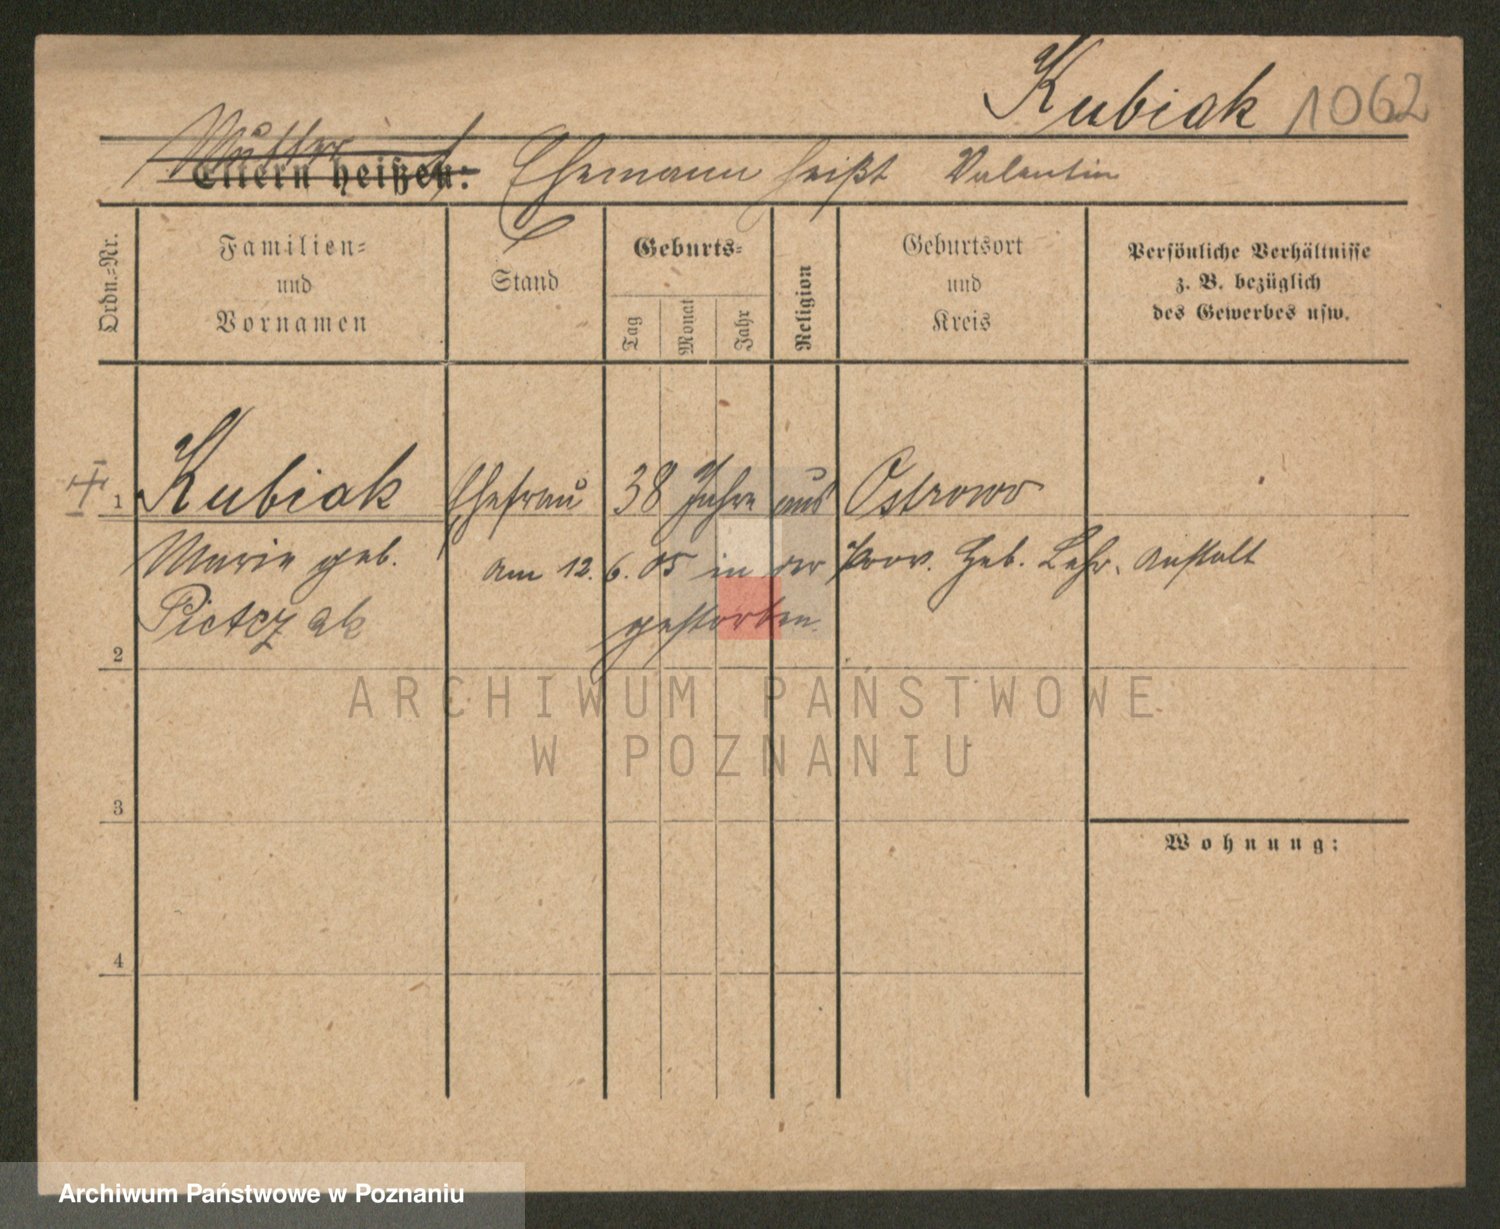 Kubiak 1062
Mutter
Eltern heißen: Ehemann heißt Valentin
Ordn.-Nr.
Familien-
und
Vornamen
Stand
Geburts-
Tag
Monat
Jahr
Religion
Geburtsort
und
Kreis
Persönliche Verhältnisse
z. B. bezüglich
des Gewerbes usw.
1 Kubiak Ehefrau 38 Jahre aus Ostrowo
Marie geb. am 12. 6. 05 in der Prov. Heb. Lehr. Anstalt
Pietrzak gestorben.
2
ARCHIWUM PAŃSTWOWE
W POZNANIU
3
Wohnung:
4
Archiwum Państwowe w Poznaniu